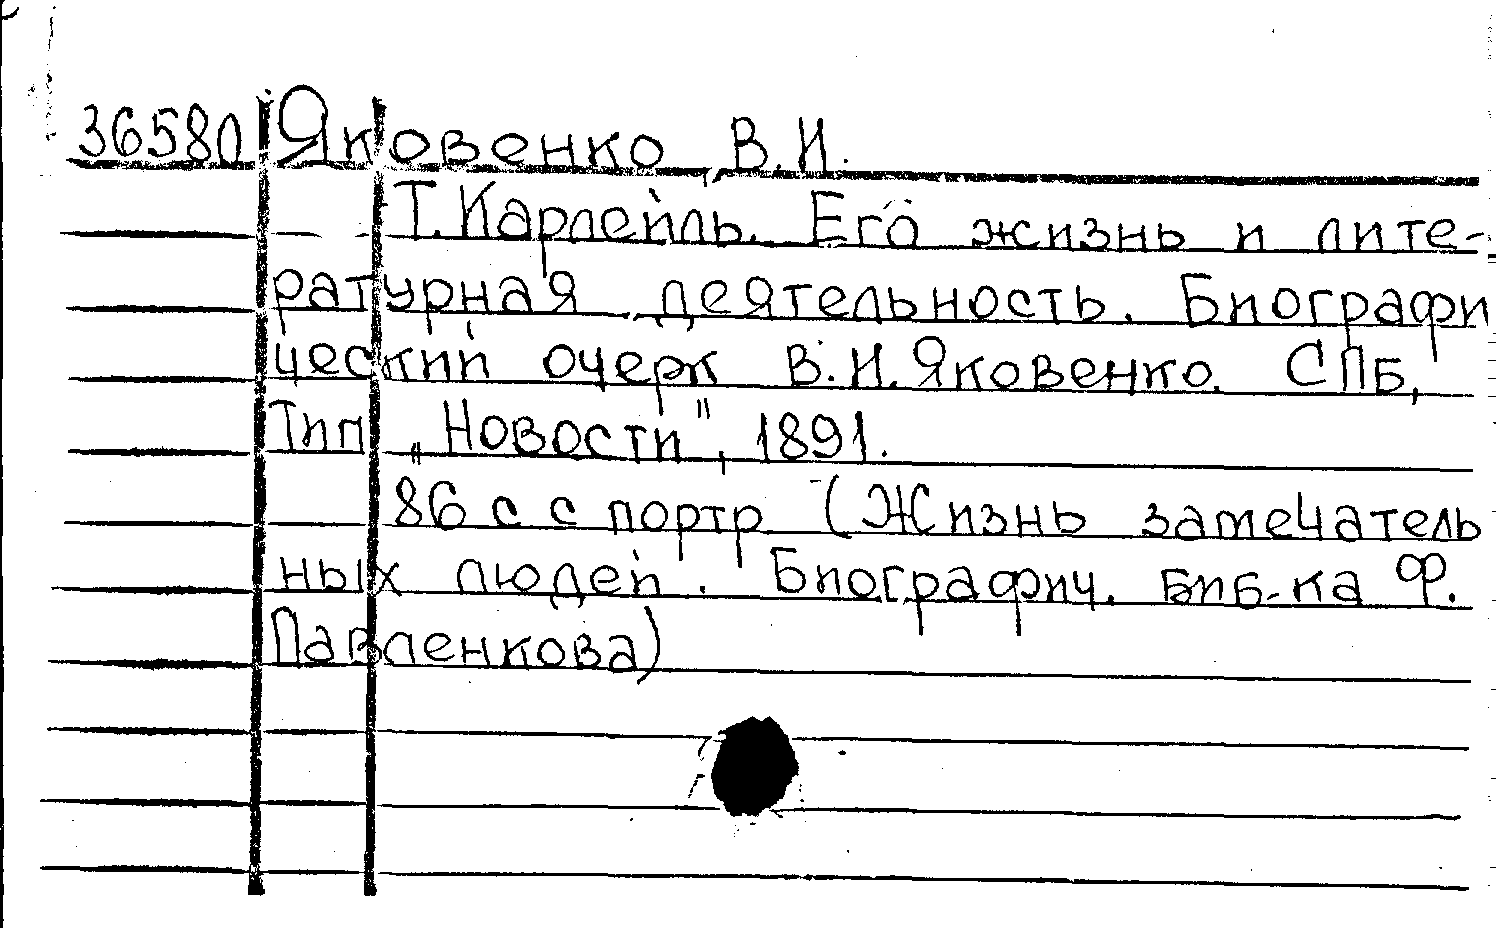 36580 Яковенко В.И.
Т. Карлейль. Его жизнь и лите-
ратурная деятельность. Биографи
ческий очерк В.И. Яковенко. СПБ,
Тип „Новости", 1891.
86 с с портр (Жизнь замечатель
ных людей. Биографич. биб-ка Ф.
Павленкова)